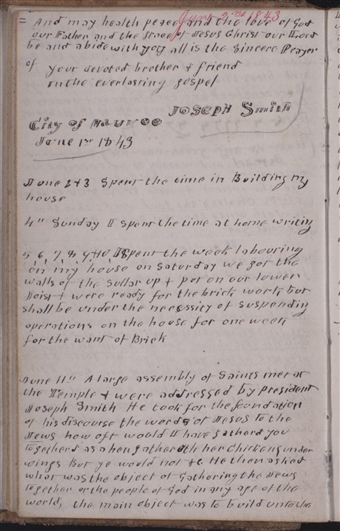 June 2nd 1843
= And may health peace and the love of God
our Father and the Grace of Jesus Christ our Lord
be and abide with you all is the Sincere Prayer
of your devoted brother & friend
in the everlasting gospel
JOSEPH Smith
City of Nauvoo
June 1st 1843
June 2 & 3 Spent the time in Building my
house
4th Sunday I spent the time at home writing
5, 6, 7, 8, 9, & 10 I Spent the week labouring
on my house on Saturday we got the
walls of the Sullar up & put on our lower
Joist & were ready for the brick work but
shall be under the necessity of suspending
operations on the house for one week
for the want of Brick
June 11th A large assembly of Saints met at
the Temple & were addressed by president
Joseph Smith He took for the foundation
of his discourse the words of Jesus to the
Jews how oft would I have gatherd you
togetherd as a hen gathereth her Chickens under
wings but ye would not &c. He then asked
what was the object of Gathering the Jews
together or the people of God in any age of the
world, the main object was to build unto the